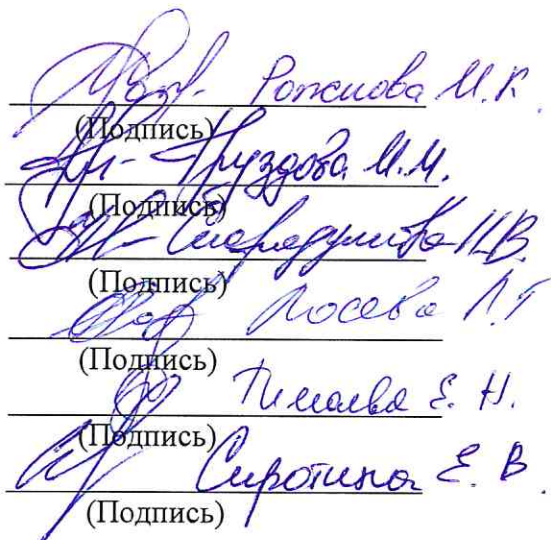 Рожнова М.К.
(Подпись)
Груздова М.М.
(Подпись)
Скородумова Н.В.
(Подпись)
Лосева Л.Г
(Подпись)
Е. Н.
(Подпись)
Сиротина Е. В.
(Подпись)